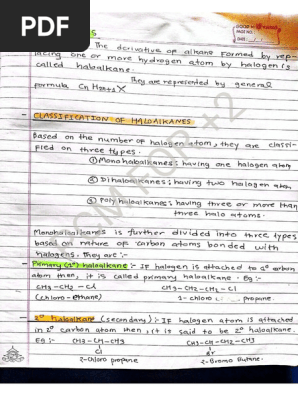 PDF
The derivative of alkane formed by rep-
lacing one or more hydrogen atom by halogen is
called haloalkane.
They are represented by general
formula CnH2n+1X
- CLASSIFICATION OF HALOALKANES
Based on the number of halogen atom, they are classi-
fied on three types.
① Monohaloalkanes: having one halogen atom
② Dihaloalkanes: having two halogen atom
③ Polyhaloalkanes: having three or more than
three halo atoms.
Monohaloalkanes is further divided into three types
based on nature of carbon atoms bonded with
halogens. They are:-
- Primary (1°) haloalkane:- If halogen is attached to 1° carbon
atom then, it is called primary haloalkane. Eg:-
CH3-CH2-Cl CH3-CH2-CH2-Cl
(chloro-ethane) 1-chloro propane.
- 2° haloalkane (secondary):- If halogen atom is attached
in 2° carbon atom then, it is said to be 2° haloalkane.
Eg:- CH3-CH-CH3 CH3-CH-CH2-CH3
Cl Br
2-chloro propane 2-Bromo Butane.